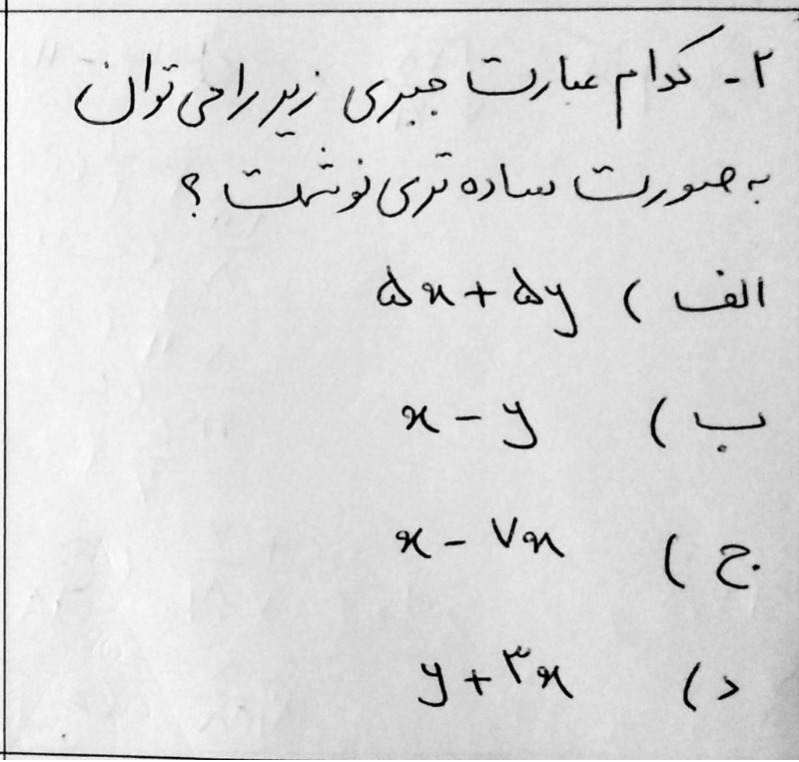 ۲- کدام عبارت جبری زیر را می توان
به صورت ساده تری نوشت ؟
الف ) ۵x + ۵y
ب ) x - y
ج ) x - ۷x
د ) y + ۳x